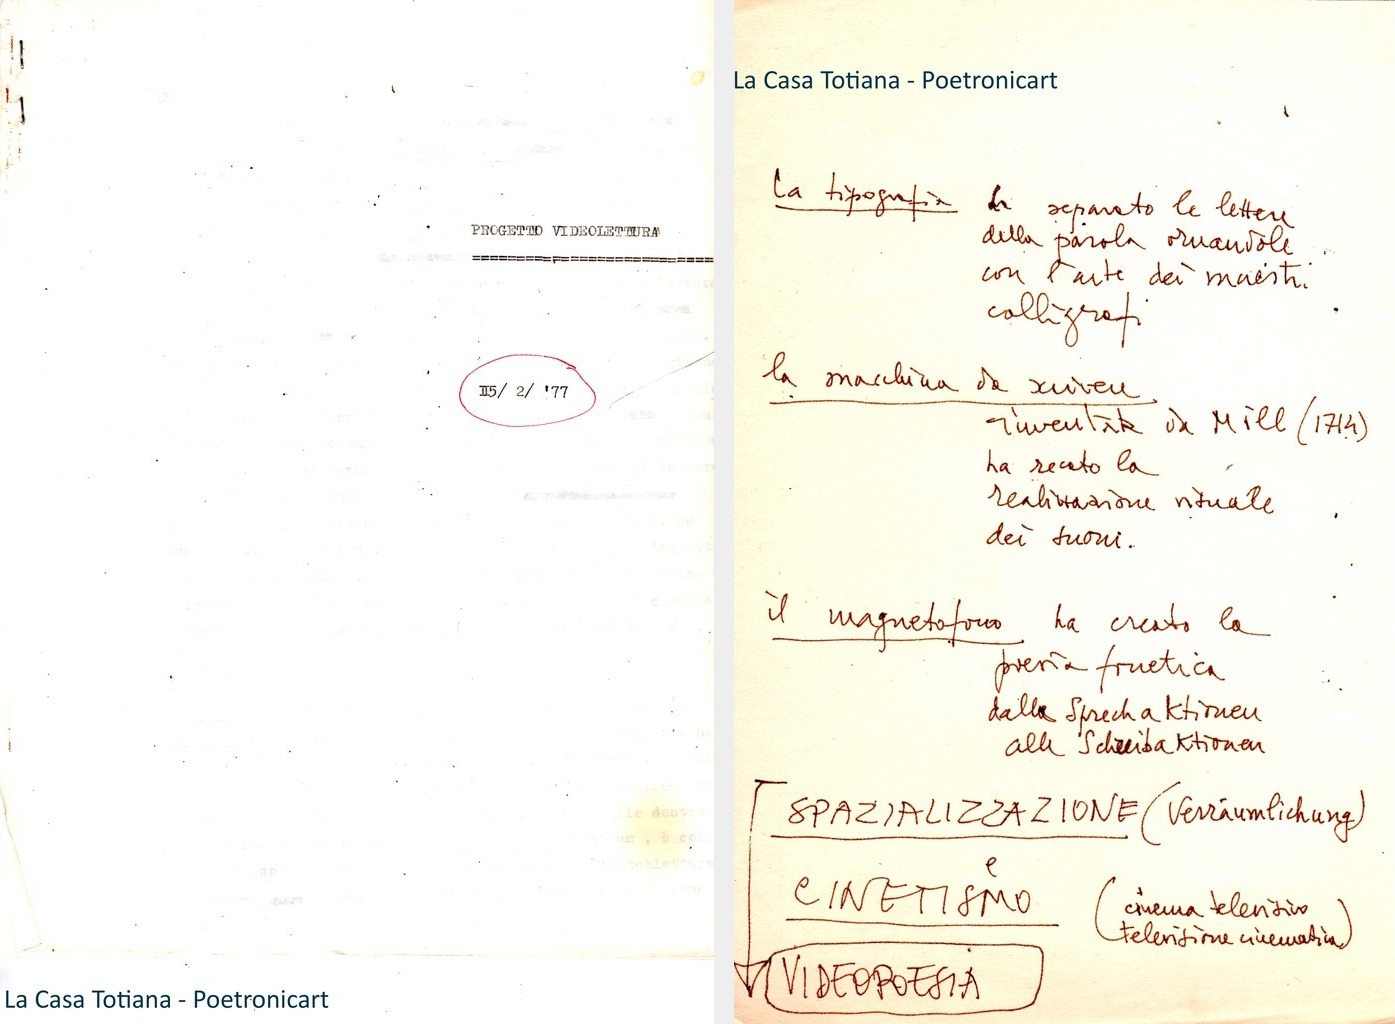 PROGETTO VIDEOLETTURA
II5/ 2/ '77
La Casa Totiana - Poetronicart
La Casa Totiana - Poetronicart
La tipografia ha separato le lettere
della parola ornandole
con l'arte dei maestri
calligrafi
la macchina da scrivere
inventata da Mill (1714)
ha recato la
realizzazione visuale
dei suoni.
il magnetofono ha creato la
poesia fonetica
dalle Sprechaktionen
alle Schreibaktionen
SPAZIALIZZAZIONE (Verräumlichung)
e
CINETISMO
(cinema televisivo
televisione cinematica)
VIDEOPOESIA